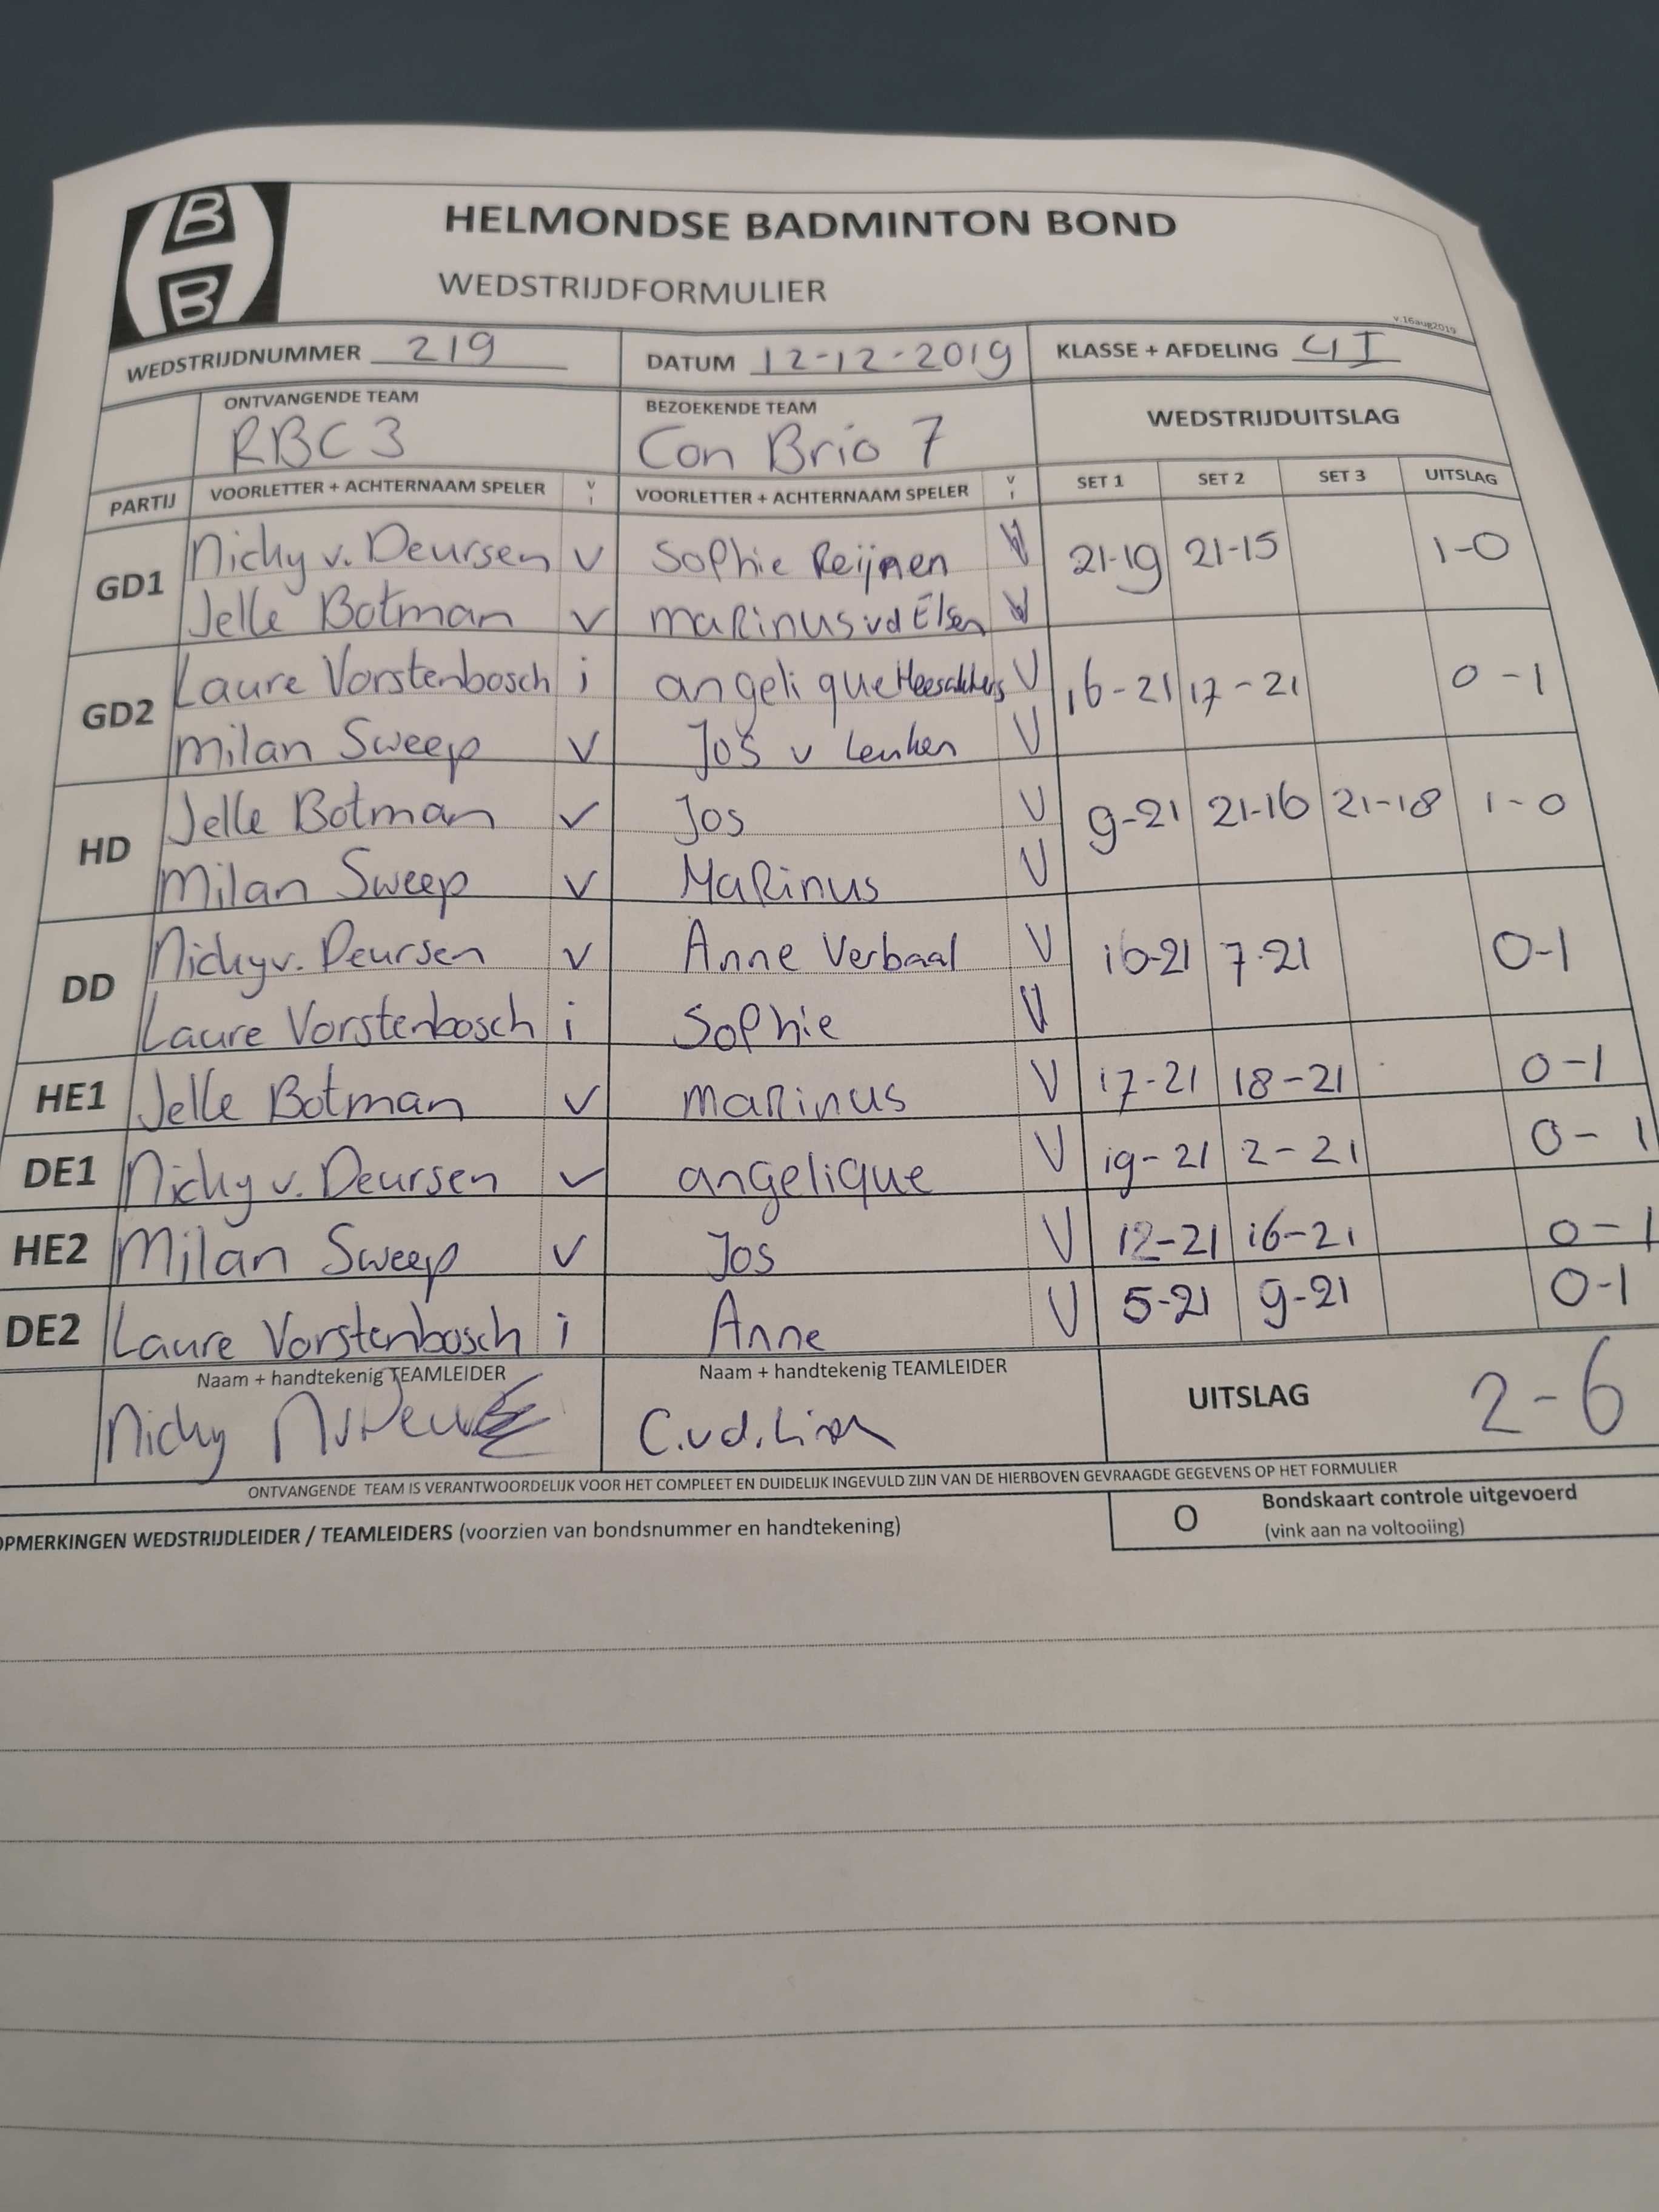 B
B
HELMONDSE BADMINTON BOND
WEDSTRIJDFORMULIER
v.16aug2019
WEDSTRIJDNUMMER 219 DATUM 12-12-2019 KLASSE + AFDELING 4I
ONTVANGENDE TEAM BEZOEKENDE TEAM WEDSTRIJDUITSLAG
RBC 3 Con Brio 7
PARTIJ VOORLETTER + ACHTERNAAM SPELER V I VOORLETTER + ACHTERNAAM SPELER V I SET 1 SET 2 SET 3 UITSLAG
GD1 Nicky v. Deursen v Sophie Reijnen V 21-19 21-15 1-0
Jelle Botman v maRinus vd Elsen V
GD2 Laure Vorstenbosch i angelique Heesakkers V 16-21 17-21 0-1
Milan Sweep v Jos v Leuken V
HD Jelle Botman v Jos V 9-21 21-16 21-18 1-0
Milan Sweep v MaRinus V
DD Nicky v. Deursen v Anne Verbaal V 7-21 0-1
Laure Vorstenbosch i Sophie V
HE1 Jelle Botman v maRinus V 17-21 18-21 0-1
DE1 Nicky v. Deursen v angelique V 19-21 2-21 0-1
HE2 Milan Sweep v Jos V 12-21 16-21 0-1
DE2 Laure Vorstenbosch i Anne V 5-21 9-21 0-1
Naam + handtekenig TEAMLEIDER Naam + handtekenig TEAMLEIDER UITSLAG 2-6
Nicky C.vd.
ONTVANGENDE TEAM IS VERANTWOORDELIJK VOOR HET COMPLEET EN DUIDELIJK INGEVULD ZIJN VAN DE HIERBOVEN GEVRAAGDE GEGEVENS OP HET FORMULIER
OPMERKINGEN WEDSTRIJDLEIDER / TEAMLEIDERS (voorzien van bondsnummer en handtekening) O Bondskaart controle uitgevoerd
(vink aan na voltooiing)